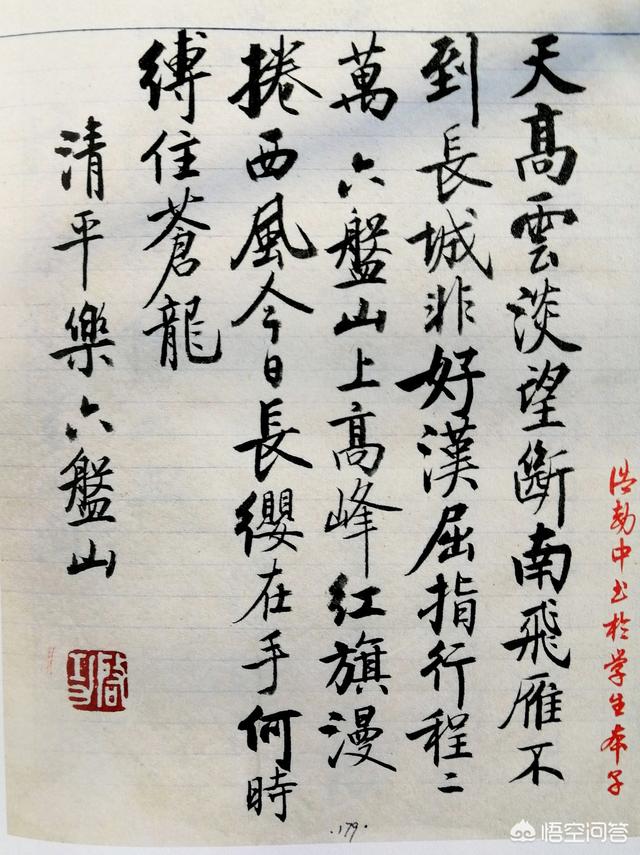 浩劫中书於学生本子
天高雲淡望斷南飛雁不
到長城非好漢屈指行程二
萬六盤山上高峰红旗漫
捲西風今日長纓在手何時
縛住蒼龍
清平樂六盤山
啓功
·179·
悟空问答